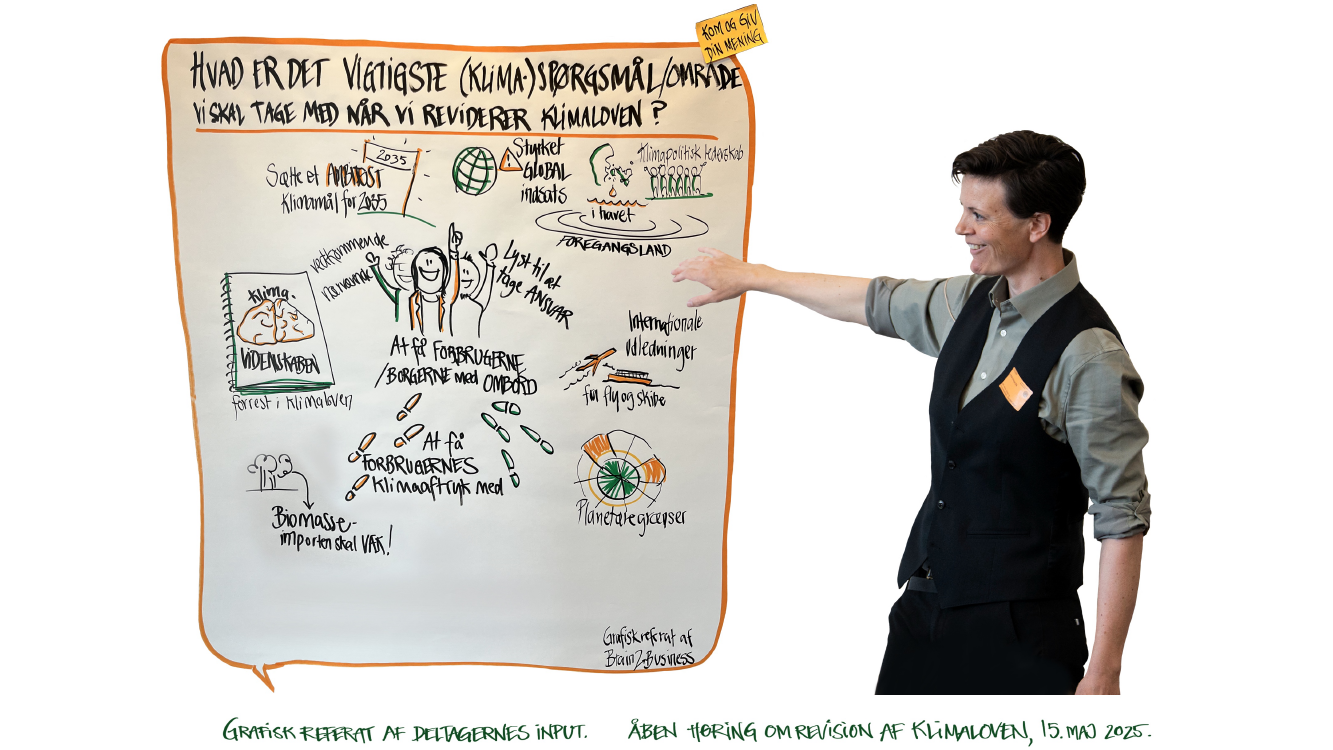 KOM OG GIV
DIN MENING
HVAD ER DET VIGTIGSTE (KLIMA-)SPØRGSMÅL/OMRÅDE
VI SKAL TAGE MED NÅR VI REVIDERER KLIMALOVEN?
2035
Sætte et AMBITIØST
Klimamål for 2035
Styrket
GLOBAL
indsats
Klimapolitisk lederskab
i havet
FOREGANGSLAND
vedkommende
nærværende
Lyst til at
tage ANSVAR
Klima-
VIDENSKABEN
forrest i klimaloven
At få FORBRUGERNE
/BORGERNE med OMBORD
Internationale
udledninger
fra fly og skibe
At få
FORBRUGERNES
Klimaaftryk med
Planetære grænser
Biomasse-
importen skal VÆK!
Grafisk referat af
Brain2Business
GRAFISK REFERAT AF DELTAGERNES INPUT. ÅBEN HØRING OM REVISION AF KLIMALOVEN, 15. MAJ 2025.